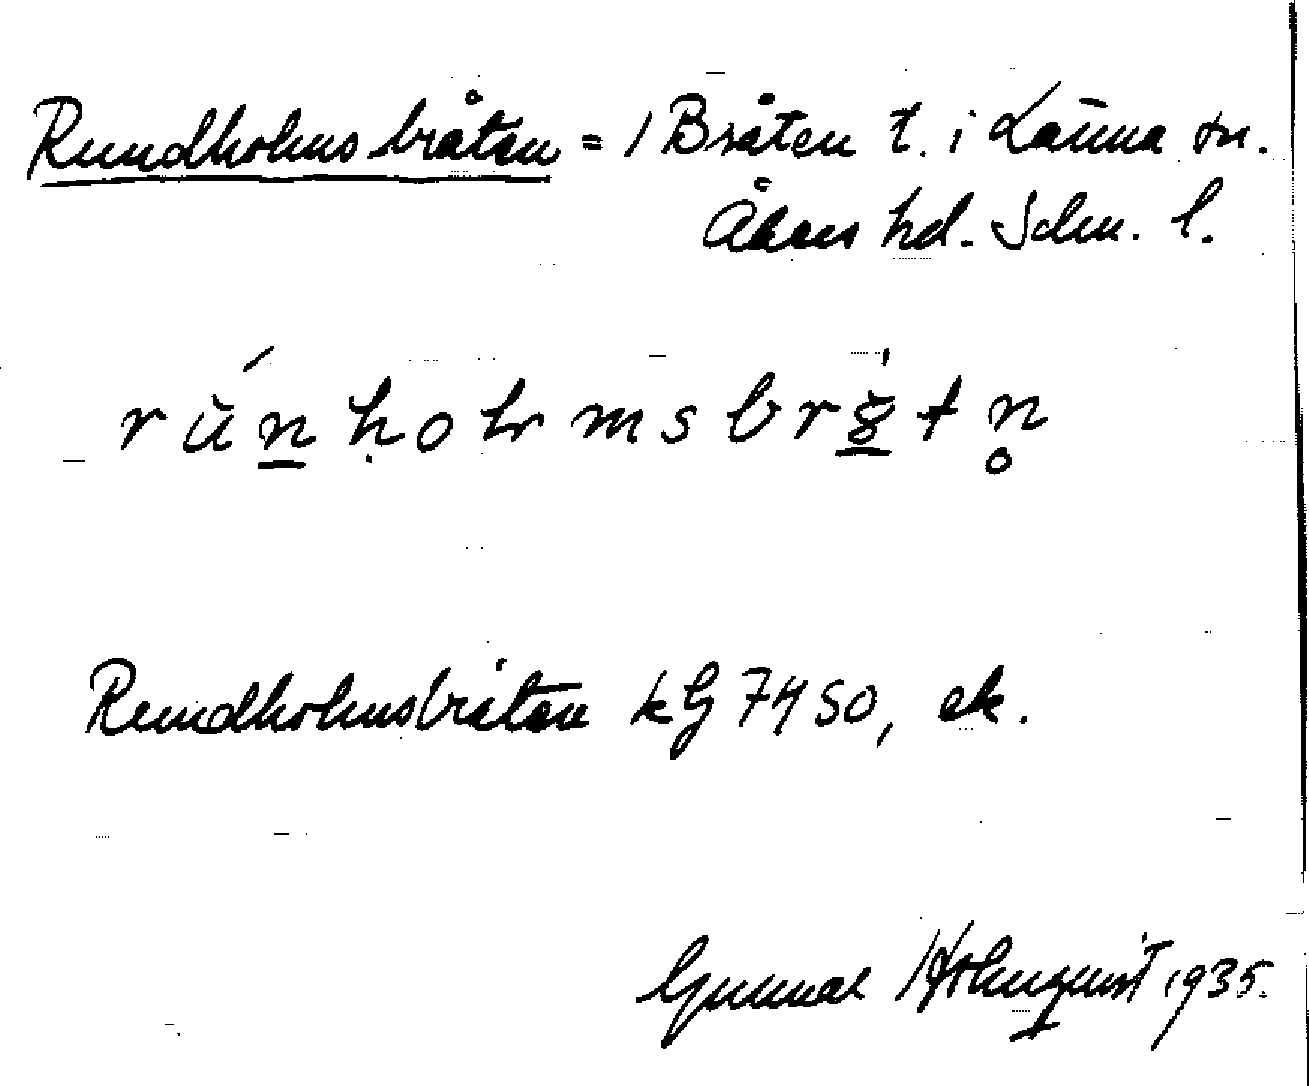 Rundholmsbråten = / Bråten t. i Länna sn.
Åkers hd. Sdm. l.
Rundholmsbråten kG 7450, ek.
Gunnar Holmquist 1935.